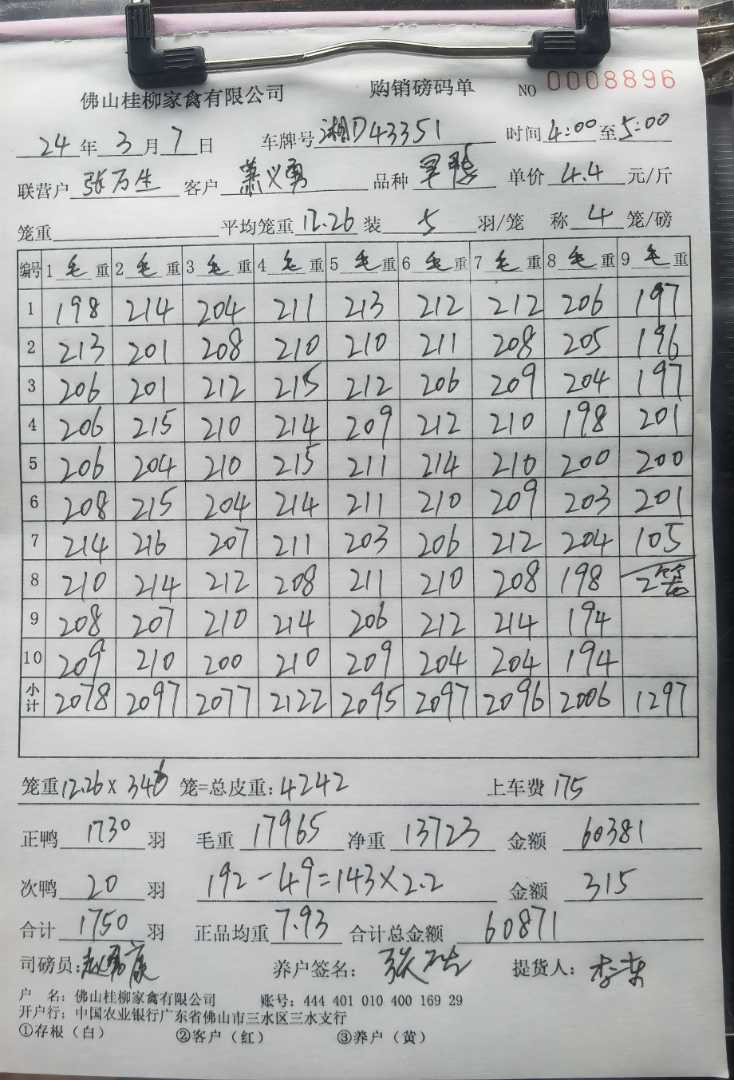 佛山桂柳家禽有限公司 购销磅码单 NO 0008896
24 年 3 月 7 日 车牌号 湘D43351 时间 4:00 至 5:00
联营户 张万生 客户 萧义勇 品种 单价 4.4 元/斤
笼重 平均笼重 12.26 装 5 羽/笼 称 4 笼/磅
编号 1 毛 重 2 毛 重 3 毛 重 4 毛 重 5 毛 重 6 毛 重 7 毛 重 8 毛 重 9 毛 重
1 198 214 204 211 213 212 212 206 197
2 213 201 208 210 210 211 208 205 196
3 206 201 212 215 212 206 209 204 197
4 206 215 210 214 209 212 210 198 201
5 206 204 210 215 211 214 210 200 200
6 208 215 204 214 211 210 209 203 201
7 214 216 207 211 203 206 212 204 105
8 210 214 212 208 211 210 208 198 2笼
9 208 207 210 214 206 212 214 194
10 209 210 200 210 209 204 204 194
小计 2078 2097 2077 2122 2095 2097 2096 2006 1297
笼重 12.26 x 346 笼=总皮重: 4242 上车费 175
正鸭 1730 羽 毛重 17965 净重 13723 金额 60381
次鸭 20 羽 192-49=143×2.2 金额 315
合计 1750 羽 正品均重 7.93 合计总金额 60871
司磅员: 养户签名: 提货人:
户 名: 佛山桂柳家禽有限公司 账号: 444 401 010 400 169 29
开户行: 中国农业银行广东省佛山市三水区三水支行
①存根（白） ②客户（红） ③养户（黄）